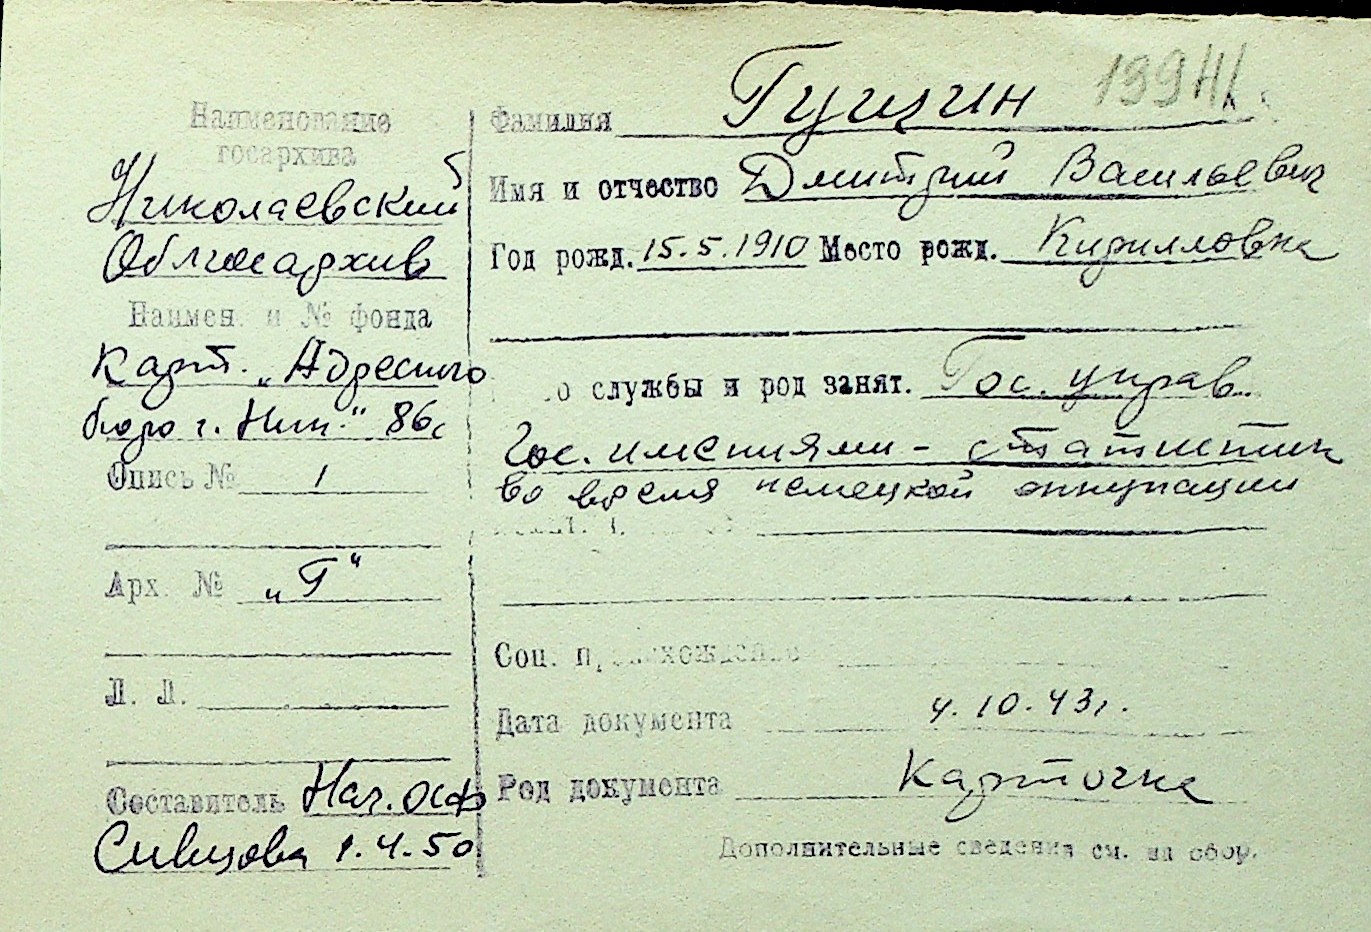 Наименование
госархива
Николаевский
Облгосархив
Наимен. и № фонда
карт. „Адресного
бюро г. Ник.“ 86с
Опись № 1
Арх. № „Г“
Л. Л.
Составитель Нач. осф
Сивцова 1.4.50
1994
Фамилия Гущин
Имя и отчество Дмитрий Васильевич
Год рожд. 15.5.1910 Место рожд. Кирилловка
о службы и род занят. Гос. управ.
Гос. имениями - статистик
во время немецкой оккупации
Соц. происхождение
Дата документа 4.10.43г.
Род документа Карточка
Дополнительные сведения см. на обор.